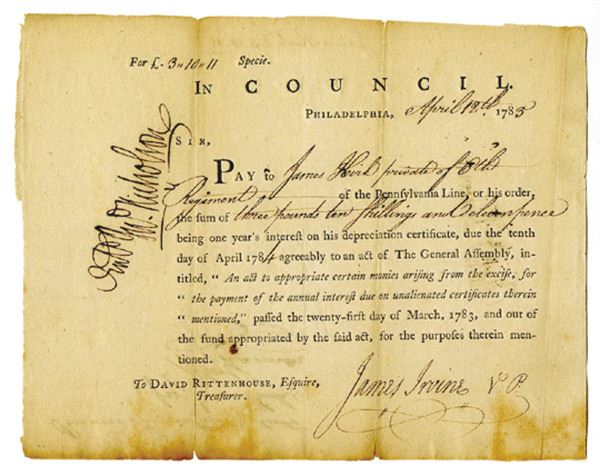 For £. 3 „ 10 „ 11 Specie.
IN COUNCIL.
PHILADELPHIA, April 12th. 1785
SIR,
PAY to James private of 6th
Regiment of the Pennsylvania Line, or his order,
the sum of three pounds ten Shillings and Eleven pence
being one year's interest on his depreciation certificate, due the tenth
day of April 1784 agreeably to an act of The General Assembly, in-
titled, " An act to appropriate certain monies arising from the excise, for
" the payment of the annual interest due on unalienated certificates therein
" mentioned," passed the twenty-first day of March, 1783, and out of
the fund appropriated by the said act, for the purposes therein men-
tioned.
To DAVID RITTENHOUSE, Esquire,
Treasurer.
James Irvine V. P.
Jno. Nicholson